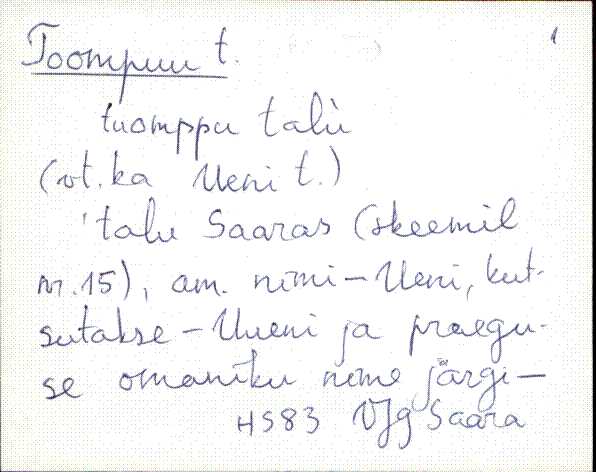 1
Toompuu t.
tuomppu talù
(vt. ka Ueni t.)
'talu Saaras (skeemil
nr. 15), am. nimi – Ueni, kut-
sutakse – Uueni ja praegu-
se omaniku nime järgi –
HS83 VJg Saara